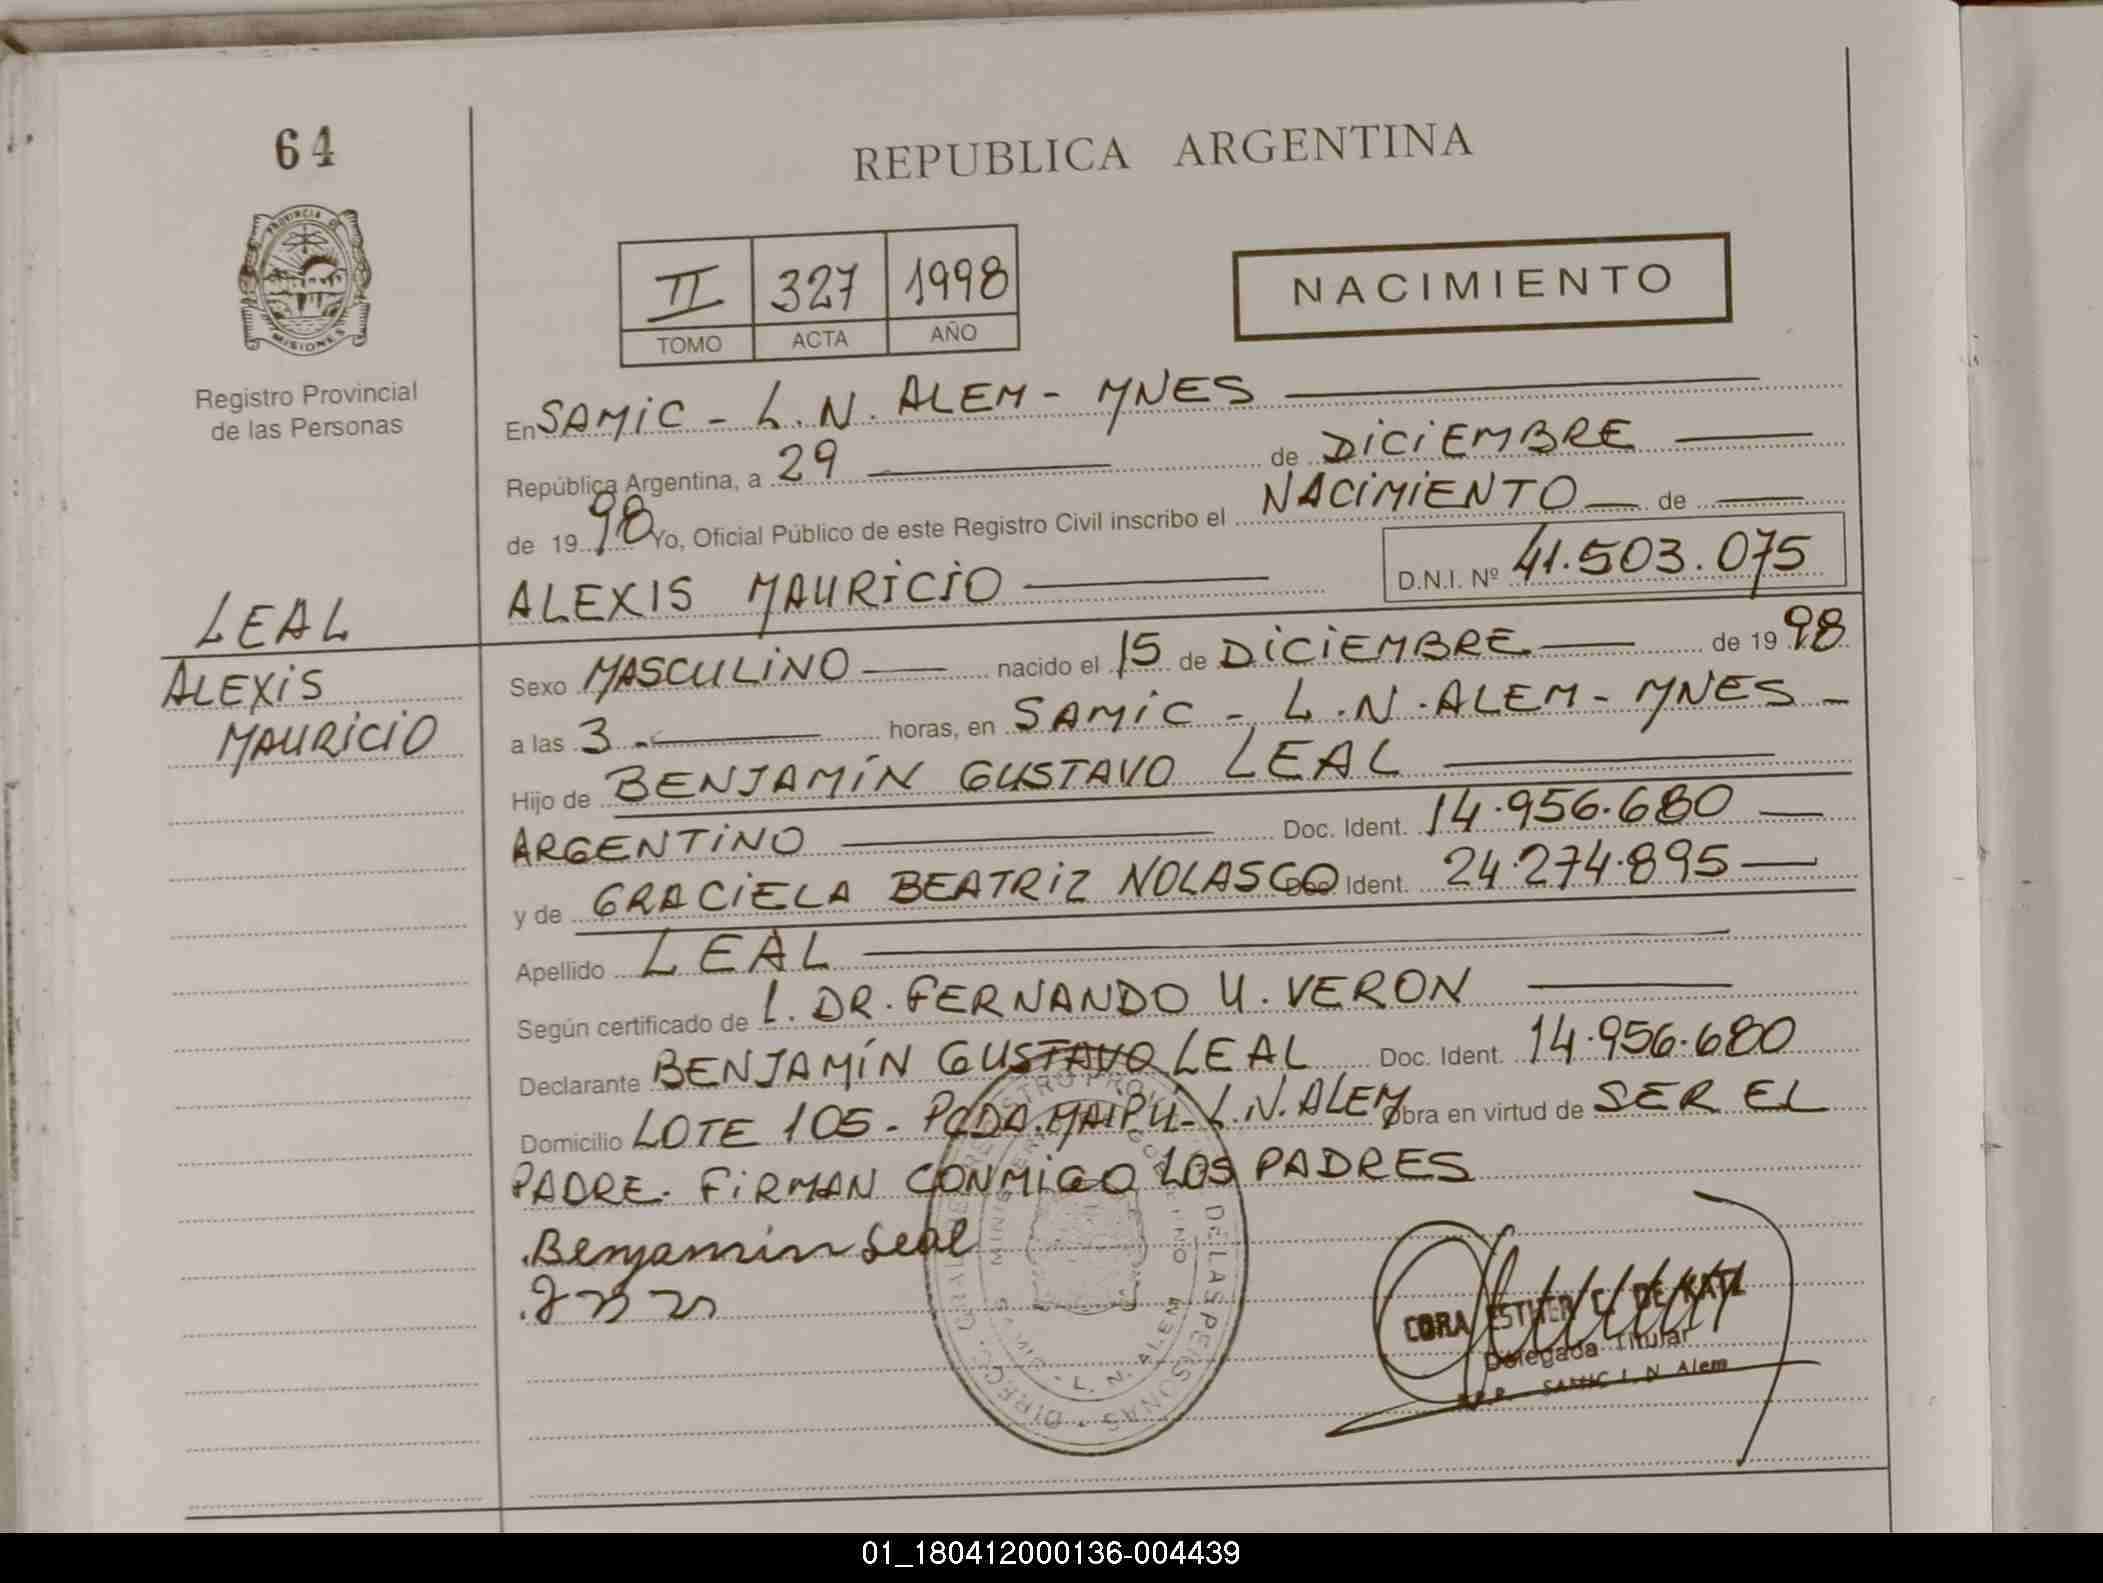 64
REPUBLICA ARGENTINA
PROVINCIA DE
MISIONES
Registro Provincial
de las Personas
II 327 1998
TOMO ACTA AÑO
NACIMIENTO
En SAMIC - L. N. ALEM - MNES
República Argentina, a 29 de DICIEMBRE
de 1998 Yo, Oficial Público de este Registro Civil inscribo el NACIMIENTO de
ALEXIS MAURICIO D.N.I. Nº 41.503.075
LEAL
ALEXIS
MAURICIO
Sexo MASCULINO nacido el 15 de DICIEMBRE de 1998
a las 3 horas, en SAMIC - L. N. ALEM - MNES
Hijo de BENJAMÍN GUSTAVO LEAL
ARGENTINO Doc. Ident. 14.956.680
y de GRACIELA BEATRIZ NOLASCO Doc. Ident. 24.274.895
Apellido LEAL
Según certificado de L. DR. FERNANDO U. VERON
Declarante BENJAMÍN GUSTAVO LEAL Doc. Ident. 14.956.680
Domicilio LOTE 105 - PCDA. MAIPU - L. N. ALEM Obra en virtud de SER EL
PADRE. FIRMAN CONMIGO LOS PADRES
Benjamin Leal
DE LAS PERSONAS
SAMIC - L. N. ALEM
CORA ESTHER C. DE KATZ
Delegada Titular
SAMIC L. N. Alem
01_180412000136-004439